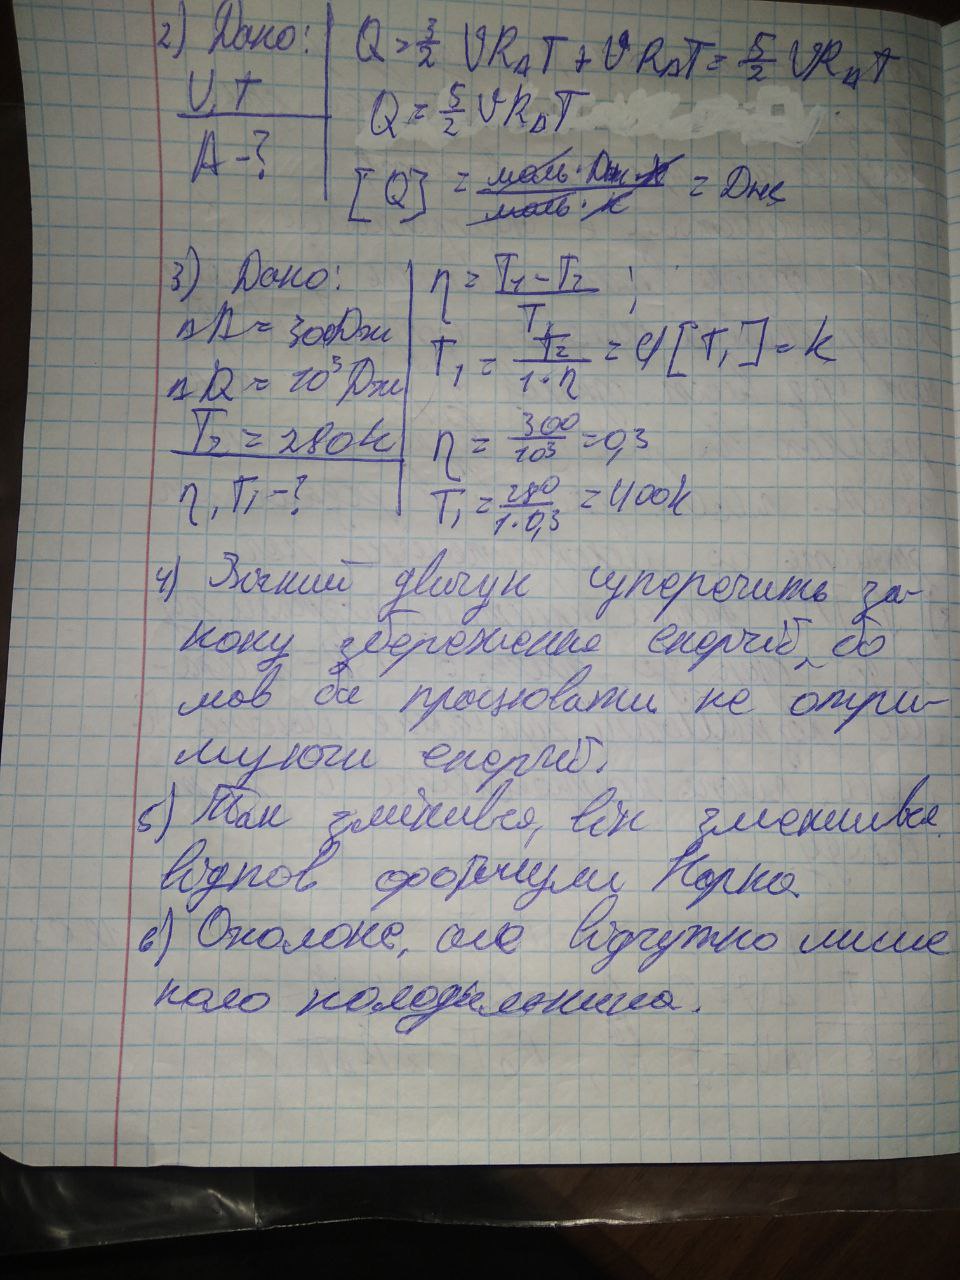 2) Дано:
Q = 3/2 νR∆T + νR∆T = 5/2 νR∆T
U, T
Q = 5/2 νR∆T
A - ?
[Q] = моль · Дж · К / моль · К = Дж
3) Дано:
η = T₁ - T₂ / T₁ ;
∆A = 300Дж
T₁ = T₂ / 1 · η = [T₁] = K
∆Q = 10³ Дж
T₂ = 280К
η = 300 / 10³ = 0,3
η, T₁ - ?
T₁ = 280 / 1 · 0,3 = 400К
4) Вічний двигун суперечить за-
кону збереження енергії, бо
мов би працювати не отри-
муючи енергії.
5) Так змінився, він зменшився
відпов формули Карно
6) Охолоне, але відчутно лише
коло холодильника.